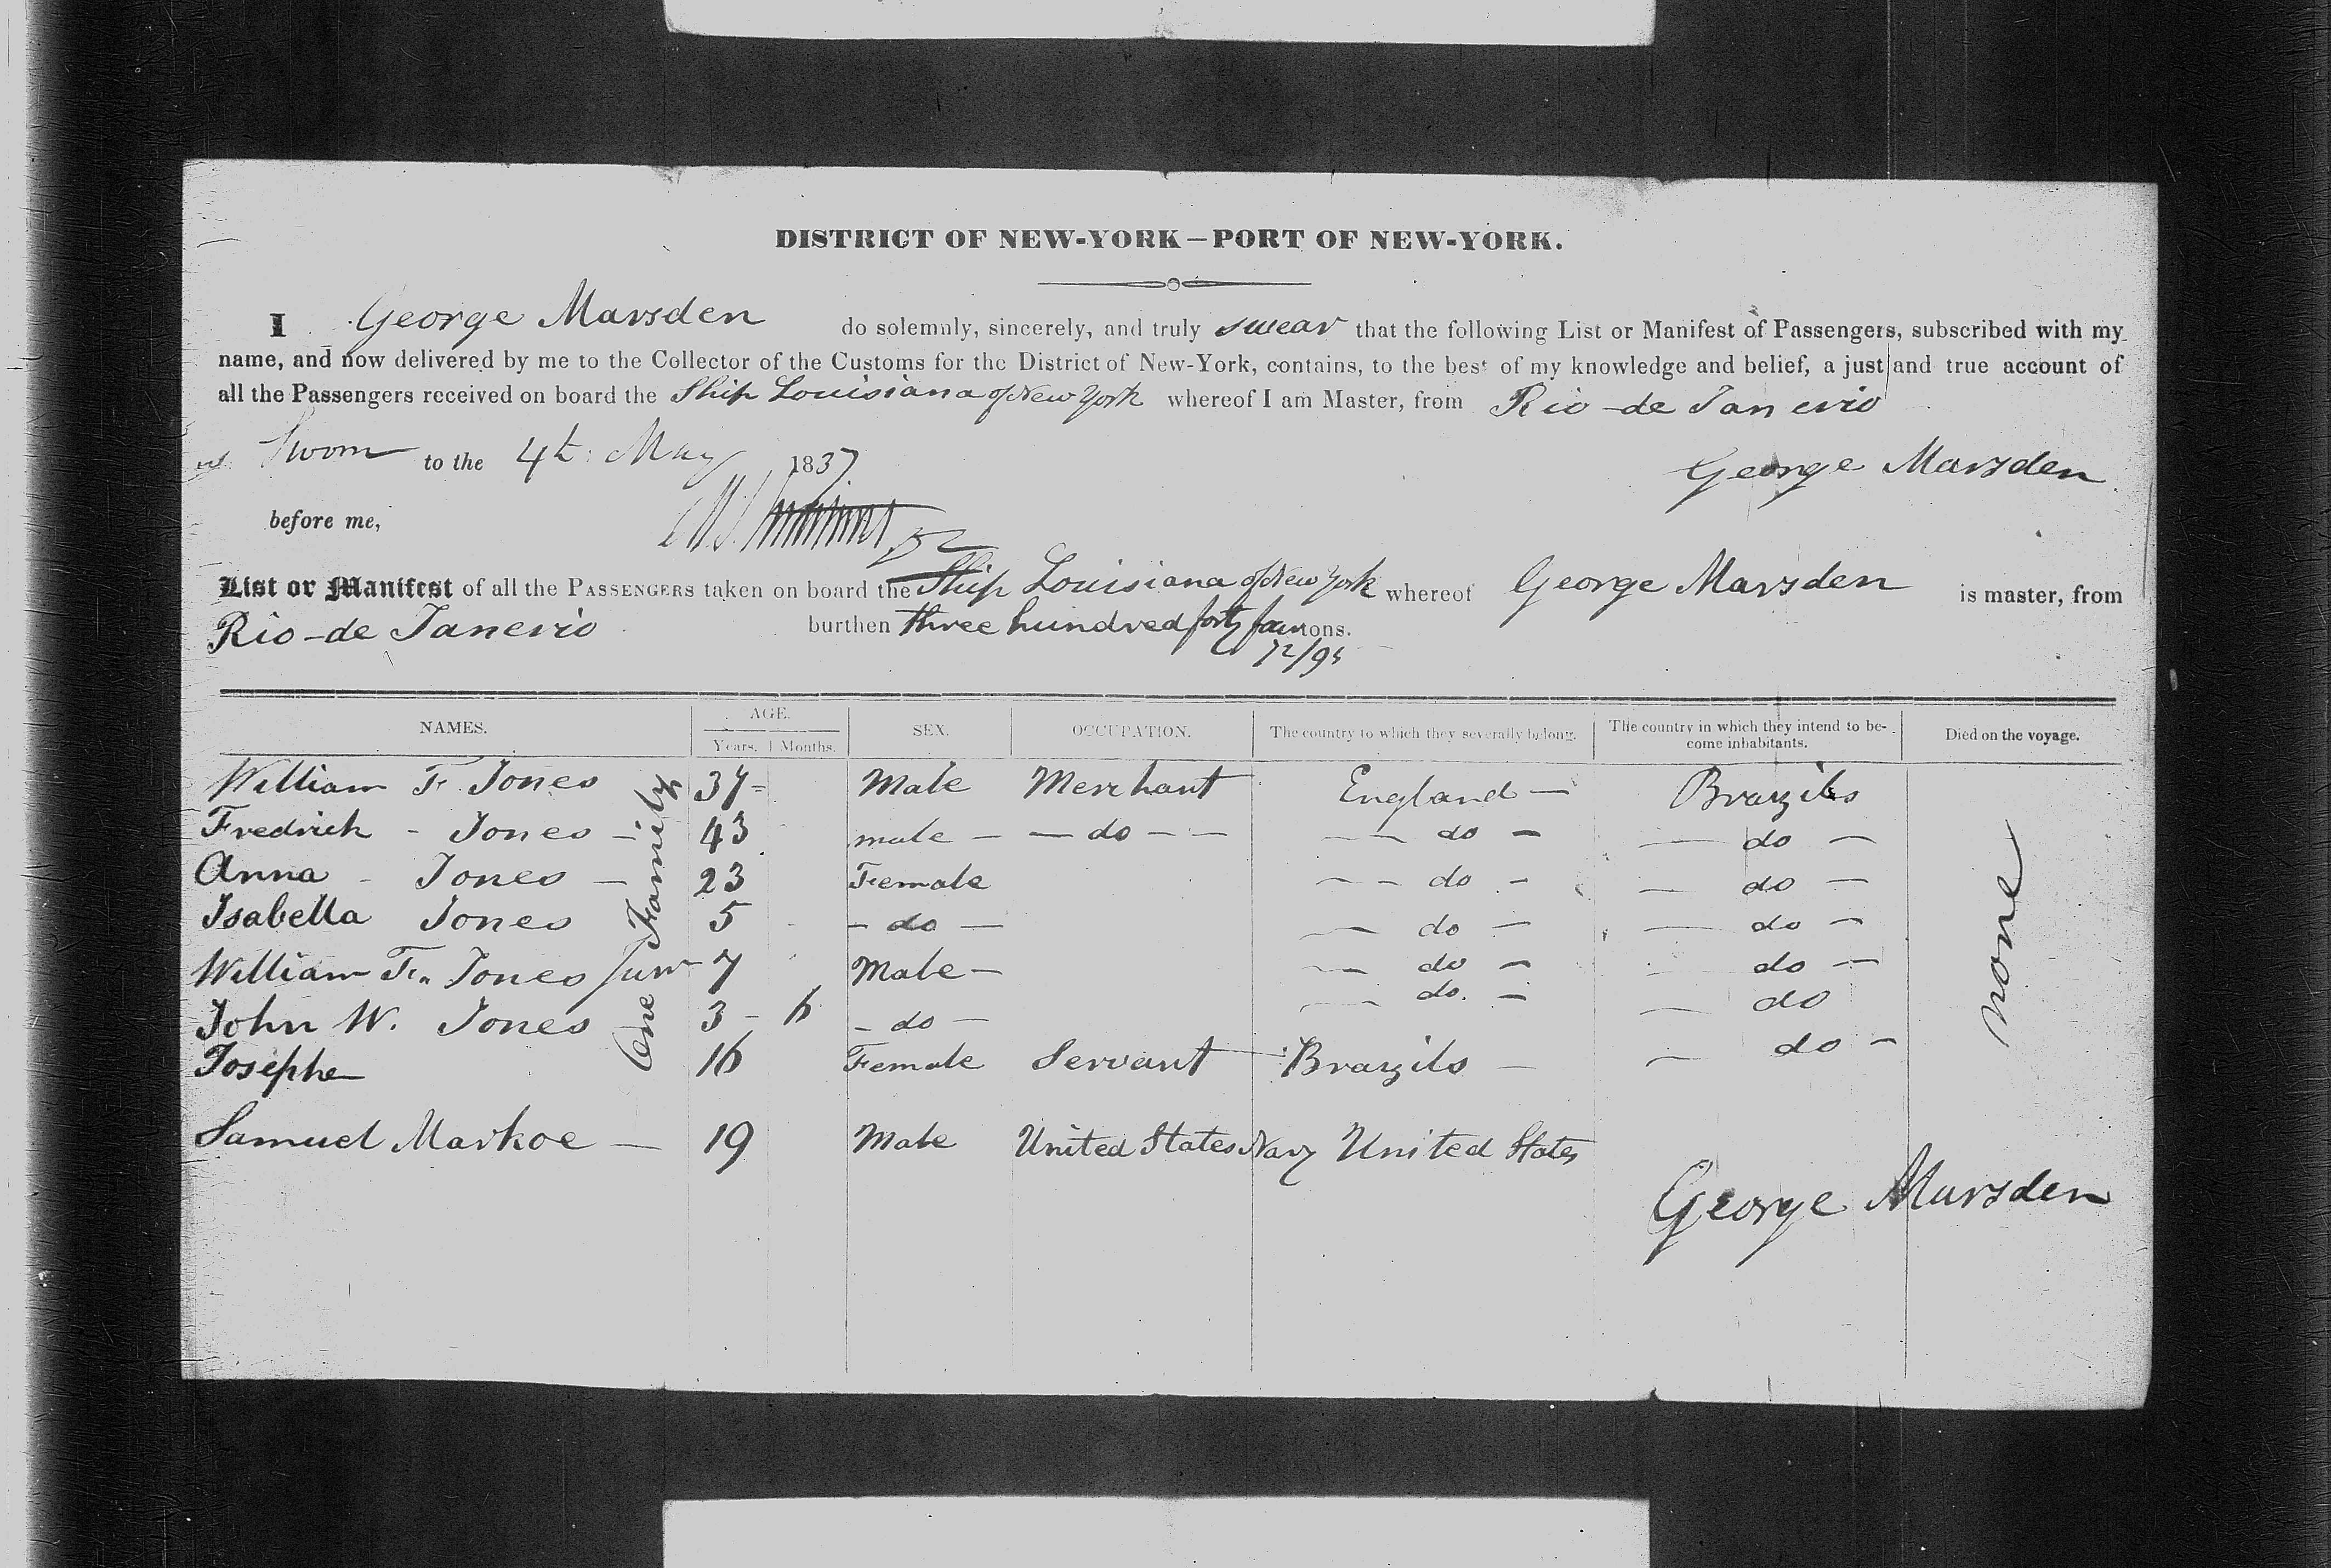 DISTRICT OF NEW-YORK—PORT OF NEW-YORK.
I George Marsden do solemnly, sincerely, and truly swear that the following List or Manifest of Passengers, subscribed with my
name, and now delivered by me to the Collector of the Customs for the District of New-York, contains, to the best of my knowledge and belief, a just and true account of
all the Passengers received on board the Ship Louisiana of New York whereof I am Master, from Rio-de Janerio
Sworn to the 4th May 1837 George Marsden
before me,
List or Manifest of all the PASSENGERS taken on board the Ship Louisiana of New York whereof George Marsden is master, from
Rio-de Janerio burthen three hundred forty four tons.
72/95
NAMES. AGE. Years. Months. SEX. OCCUPATION. The country to which they severally belong. The country in which they intend to become inhabitants. Died on the voyage.
William F. Jones 37 Male Merchant England — Brazils
Fredrick - Jones — 43 male — — do — — — do — — do —
Anna - Jones — 23 Female — — do - — do —
Isabella Jones 5 - do — — do — — do —
William F. Jones Junr 7 Male — — do — do —
John W. Jones 3 - 6 - do — — do. — — do
Josephe 16 Female Servant Brazils — — do -
One Family
none
Samuel Markoe — 19 Male United States Navy United States
George Marsden